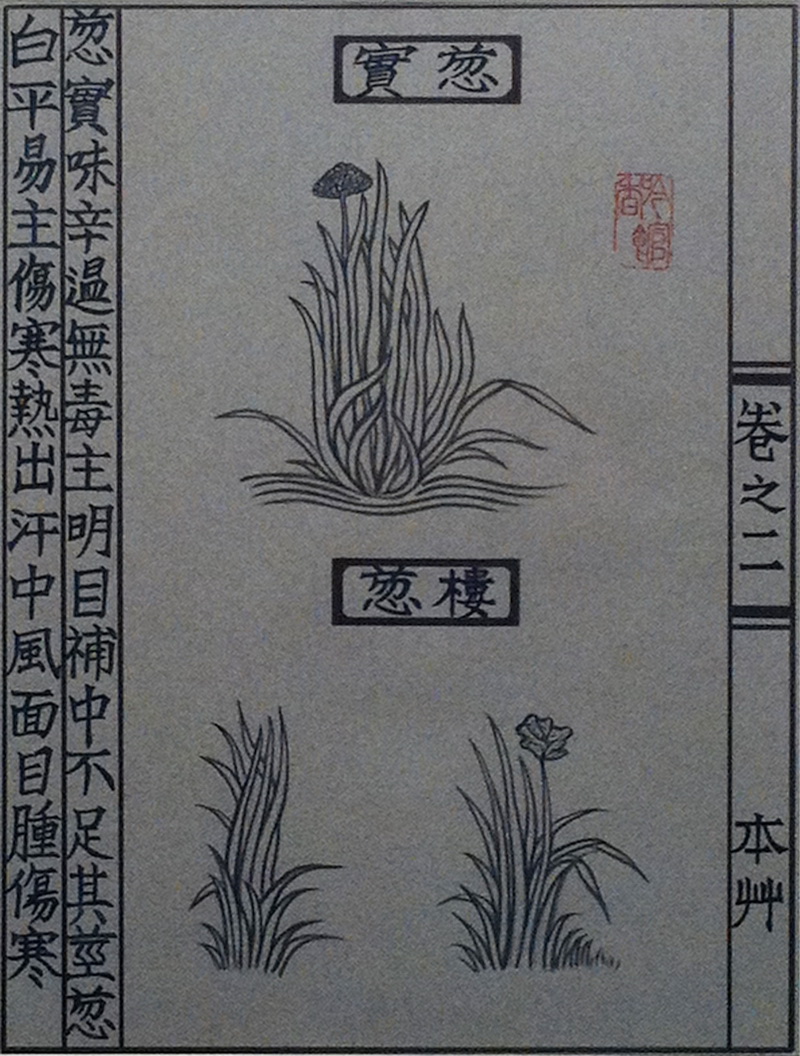 卷之二
本艸
葱實
樓葱
葱實味辛温無毒主明目補中不足其莖葱
白平易主傷寒熱出汗中風面目腫傷寒